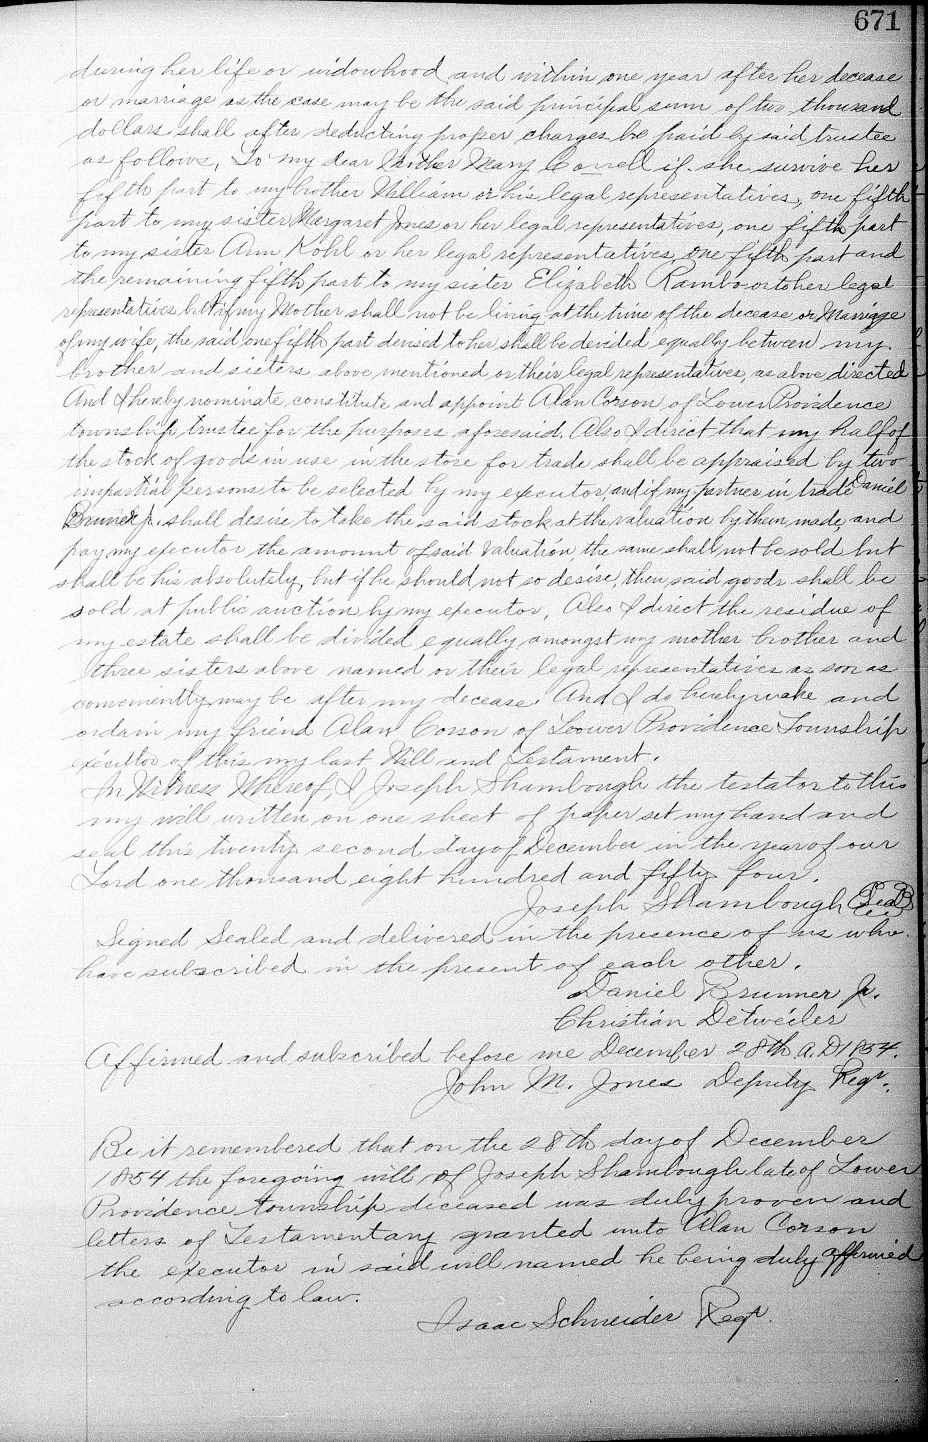 671
during her life or widowhood and within one year after her decease
or marriage as the case may be the said principal sum of two thousand
dollars shall after deducting proper charges be paid by said trustee
as follows, To my dear Mother Mary if she survive her
fifth part to my brother William or his legal representatives, one fifth
part to my sister Margaret Jones or her legal representatives, one fifth part
to my sister Ann Kohl or her legal representatives, one fifth part and
the remaining fifth part to my sister Elizabeth Rambo or to her legal
representatives but if my Mother shall not be living at the time of the decease or Marriage
of my wife, the said one fifth part devised to her shall be devided equally between my
brother and sisters above mentioned or their legal representatives, as above directed
And I hereby nominate, constitute and appoint Alan Corson of Lower Providence
township, trustee for the purposes aforesaid. Also I direct that my half of
the stock of goods in use in the store for trade shall be appraised by two
impartial persons to be selected by my executor, and if my partner in trade Daniel
Brunner Jr. shall desire to take the said stock at the valuation by them made, and
pay my executor the amount of said valuation the same shall not be sold but
shall be his absolutely, but if he should not so desire, then said goods shall be
sold at public auction by my executor, Also I direct the residue of
my estate shall be divided equally amongst my mother brother and
three sisters above named or their legal representatives as soon as
conveniently may be after my decease And I do hereby make and
ordain my friend Alan Corson of Loower Providence Township
executor of this my last Will and Testament.
In Witness Whereof, I Joseph Shambough the testator to this
my will written on one sheet of paper set my hand and
seal this twenty second day of December in the year of our
Lord one thousand eight hundred and fifty four.
Joseph Shambough Seal
Signed Sealed and delivered in the presence of us who
have subscribed in the present of each other.
Daniel Brunner Jr.
Christian Detweiler
Affirmed and subscribed before me December 28th A.D 1854.
John M. Jones Deputy Regr.
Be it remembered that on the 28th day of December
1854 the foregoing will of Joseph Shambough late of Lower
Providence township deceased was duly proven and
letters of Testamentary granted unto Alan Corson
the executor in said will named he being duly affirmed
according to law.
Isaac Schneider Regr.